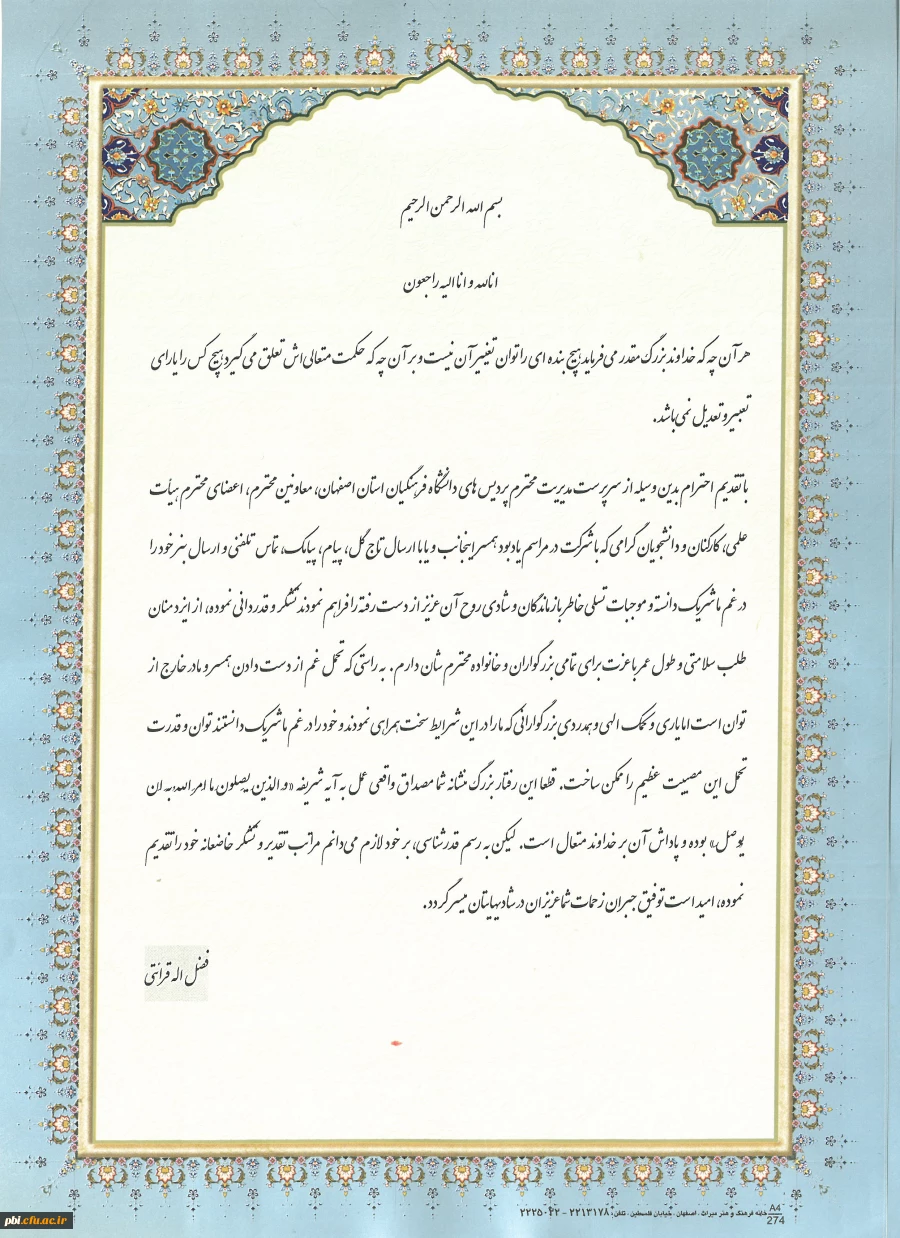 بسم الله الرحمن الرحیم
انالله و انا الیه راجعون
هر آن چه که خداوند بزرگ مقدر می فرماید هیچ بنده ای را توان تغییر آن نیست و بر آن چه که حکمت متعالی اش تعلق می گیرد هیچ کس را یارای
تعبیر و تعدیل نمی باشد.
با تقدیم احترام بدین وسیله از سرپرست مدیریت محترم پردیس های دانشگاه فرهنگیان استان اصفهان، معاونین محترم، اعضای محترم هیأت
علمی، کارکنان و دانشجویان گرامی که با شرکت در مراسم یادبود همسر اینجانب و یا با ارسال تاج گل، پیام، پیامک، تماس تلفنی و ارسال بنر خود را
در غم ما شریک دانسته و موجبات تسلی خاطر بازماندگان و شادی روح آن عزیز از دست رفته را فراهم نمودند تشکر و قدردانی نموده، از ایزد منان
طلب سلامتی و طول عمر با عزت برای تمامی بزرگواران و خانواده محترم شان دارم. به راستی که تحمل غم از دست دادن همسر و مادر خارج از
توان است اما یاری و کمک الهی و همدردی بزرگوارانی که ما را در این شرایط سخت همراهی نمودند و خود را در غم ما شریک دانستند توان و قدرت
تحمل این مصیبت عظیم را ممکن ساخت. قطعا این رفتار بزرگ منشانه شما مصداق واقعی عمل به آیه شریفه «و الذین یصلون ما امر الله به ان
یوصل» بوده و پاداش آن بر خداوند متعال است. لیکن به رسم قدرشناسی، بر خود لازم می دانم مراتب تقدیر و تشکر خاضعانه خود را تقدیم
نموده، امید است توفیق جبران زحمات شما عزیزان در شادیهایتان میسر گردد.
فضل اله قرائتی
A4
274
خانه فرهنگ و هنر میراث . اصفهان . خیابان فلسطین . تلفن: ۲۲۱۳۱۷۸ - ۲۲۲۵۰۴۲
pbi.cfu.ac.ir